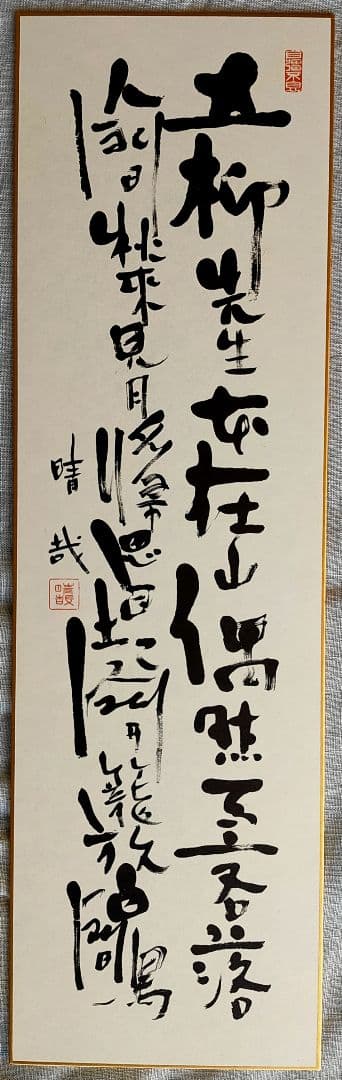 五柳先生本在山偶然為客落
人間秋來見月多歸思自起開籠放白鷴
晴哉